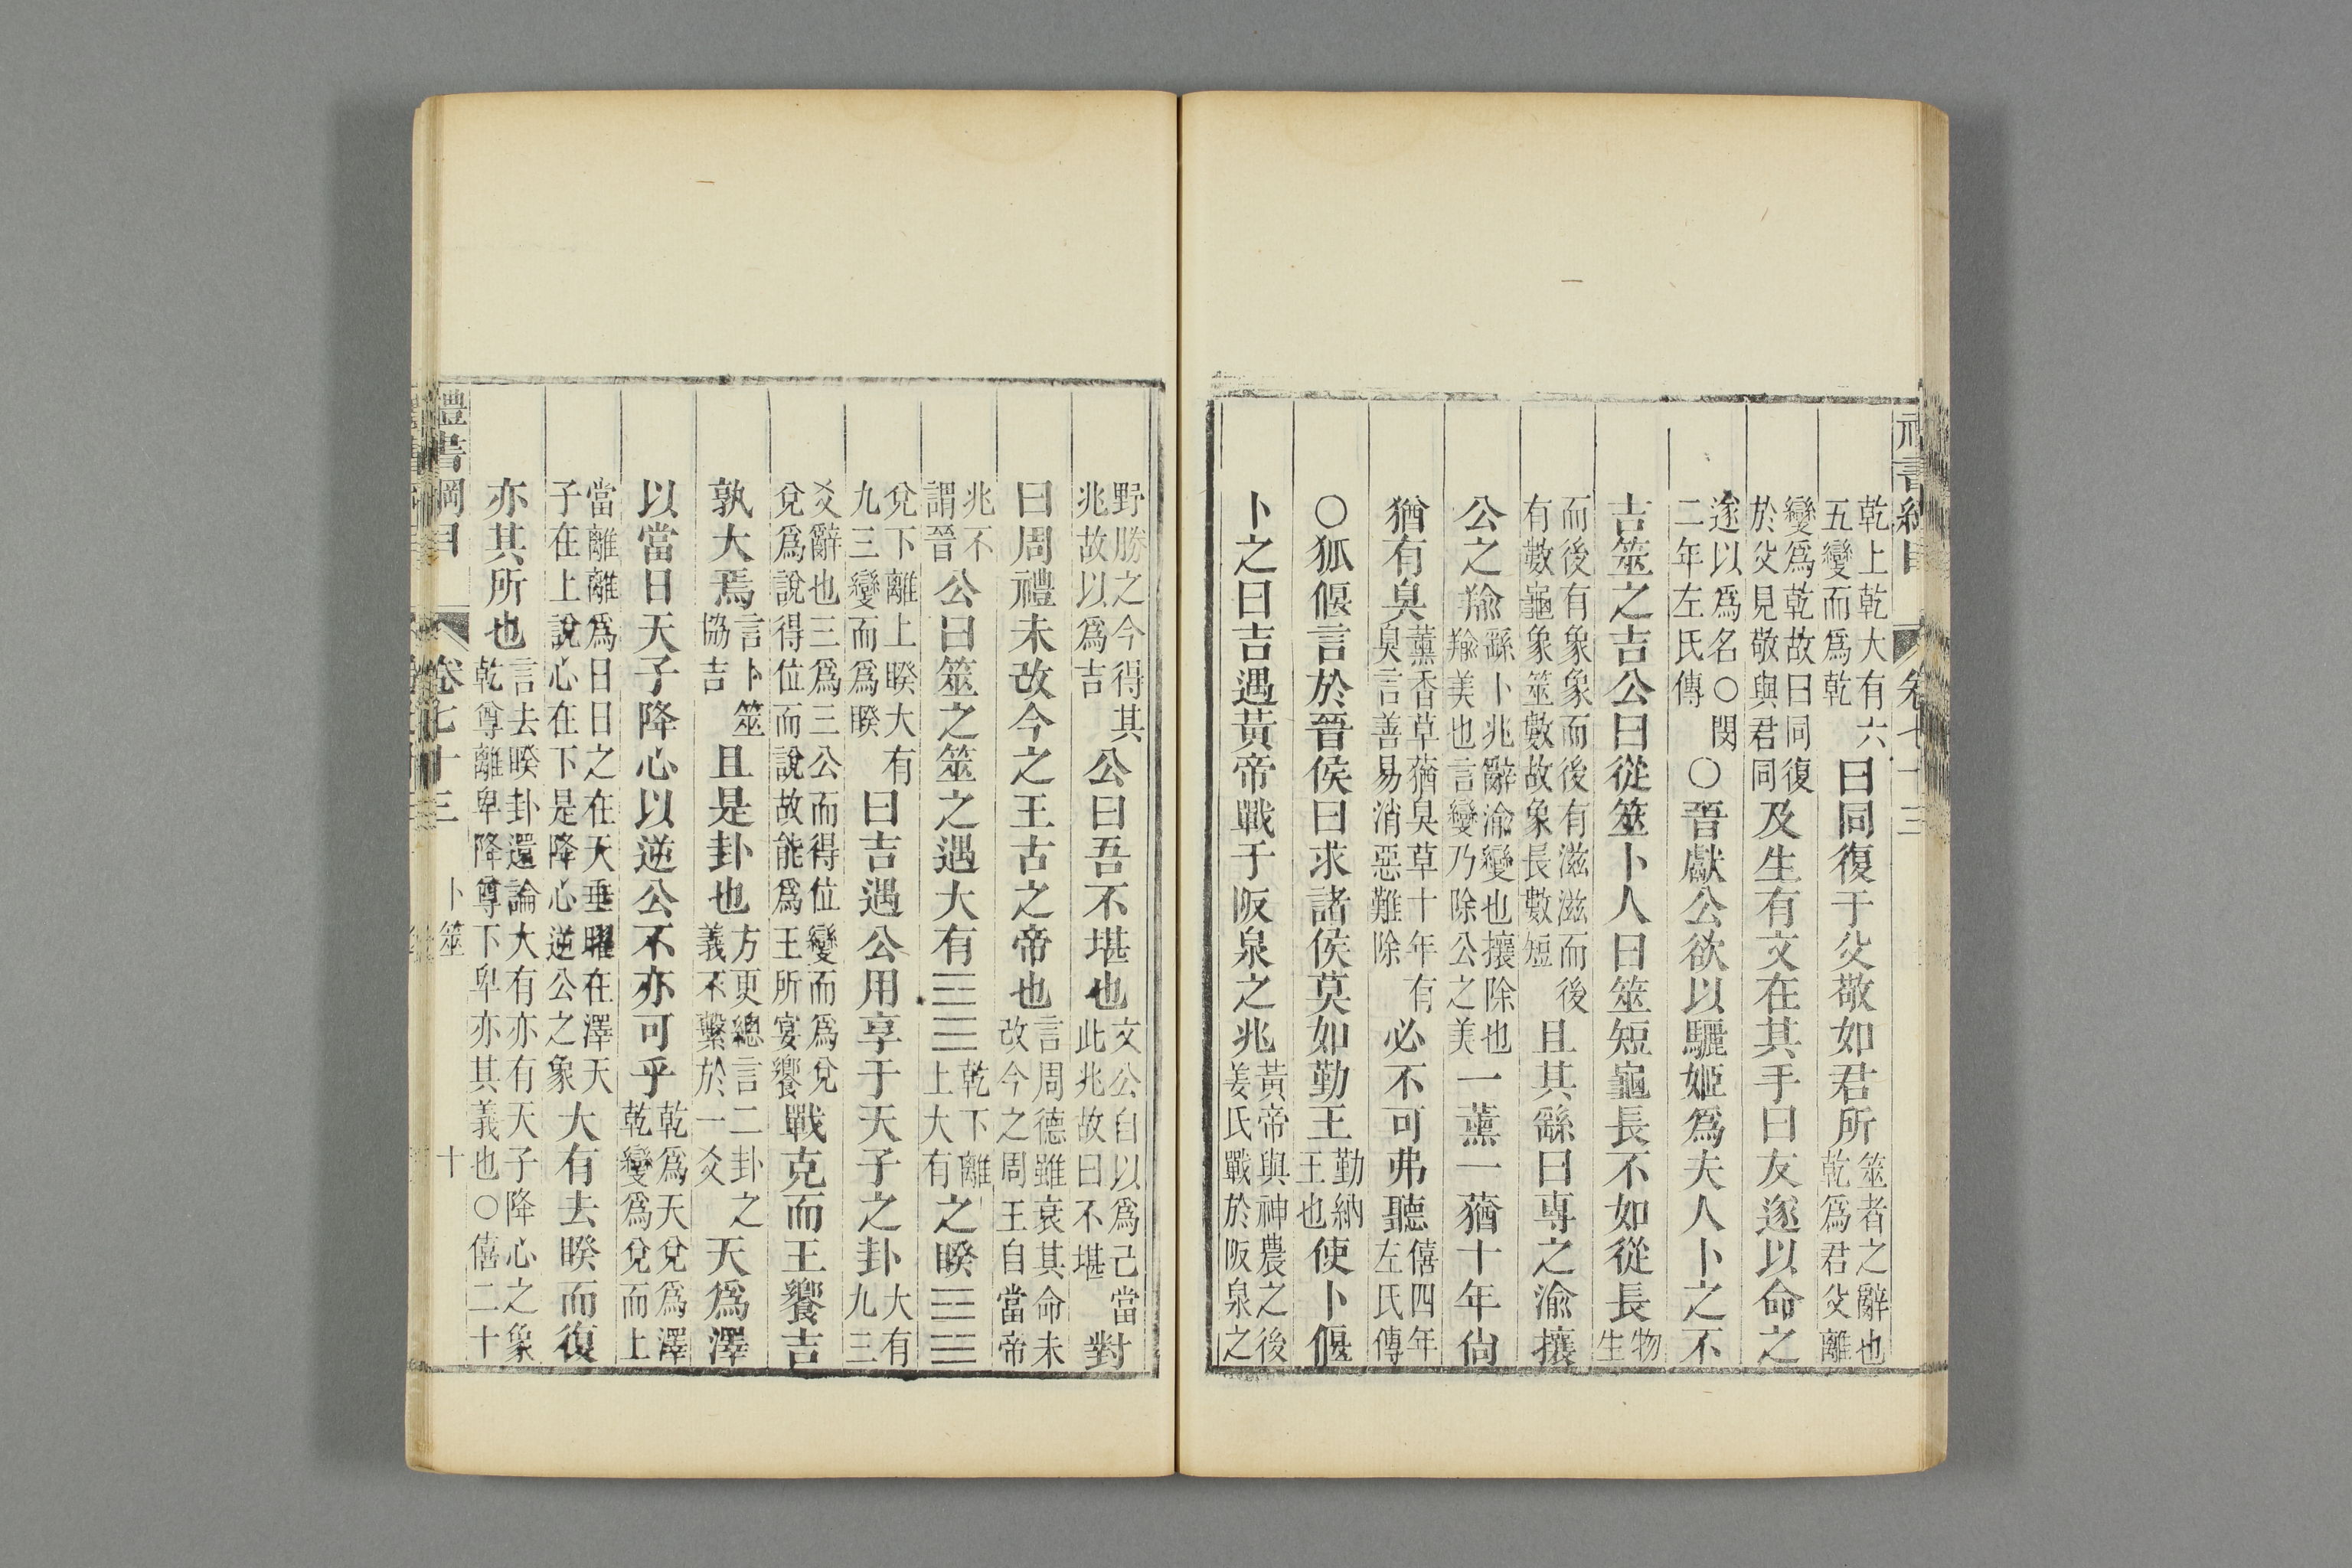 禮書綱目 卷七十三
乾上乾大有六五變而爲乾曰同復于父敬如君所筮者之辭也乾爲君父離
變爲乾故曰同復於父見敬與君同及生有文在其手曰友遂以命之
遂以爲名○閔二年左氏傳○晉獻公欲以驪姬爲夫人卜之不
吉筮之吉公曰從筮卜人曰筮短龜長不如從長物生
而後有象象而後有滋滋而後有數龜象筮數故象長數短且其繇曰専之渝攘
公之羭繇卜兆辭渝變也攘除也羭美也言變乃除公之美一薰一蕕十年尙
猶有臭薰香草蕕臭草十年有臭言善易消惡難除必不可弗聽僖四年左氏傳
○狐偃言於晉侯曰求諸侯莫如勤王勤納王也使卜偃
卜之曰吉遇黃帝戰于阪泉之兆黃帝與神農之後姜氏戰於阪泉之
野勝之今得其兆故以爲吉公曰吾不堪也文公自以爲己當此兆故曰不堪對
曰周禮未改今之王古之帝也言周德雖衰其命未改今之周王自當帝
兆不謂晉公曰筮之筮之遇大有☰☲乾下離上大有之睽☱☲
兌下離上睽大有九三變而爲睽曰吉遇公用享于天子之卦大有九三
爻辭也三爲三公而得位變而爲兌兌爲說得位而說故能爲王所宴饗戰克而王饗吉
孰大焉言卜筮協吉且是卦也方更總言二卦之義不繫於一爻天爲澤
以當日天子降心以逆公不亦可乎乾爲天兌爲澤乾變爲兌而上
當離離爲日日之在天垂曜在澤天子在上說心在下是降心逆公之象大有去睽而復
亦其所也言去睽卦還論大有亦有天子降心之象乾尊離卑降尊下卑亦其義也○僖二十
禮書綱目 卷七十三 卜筮 十